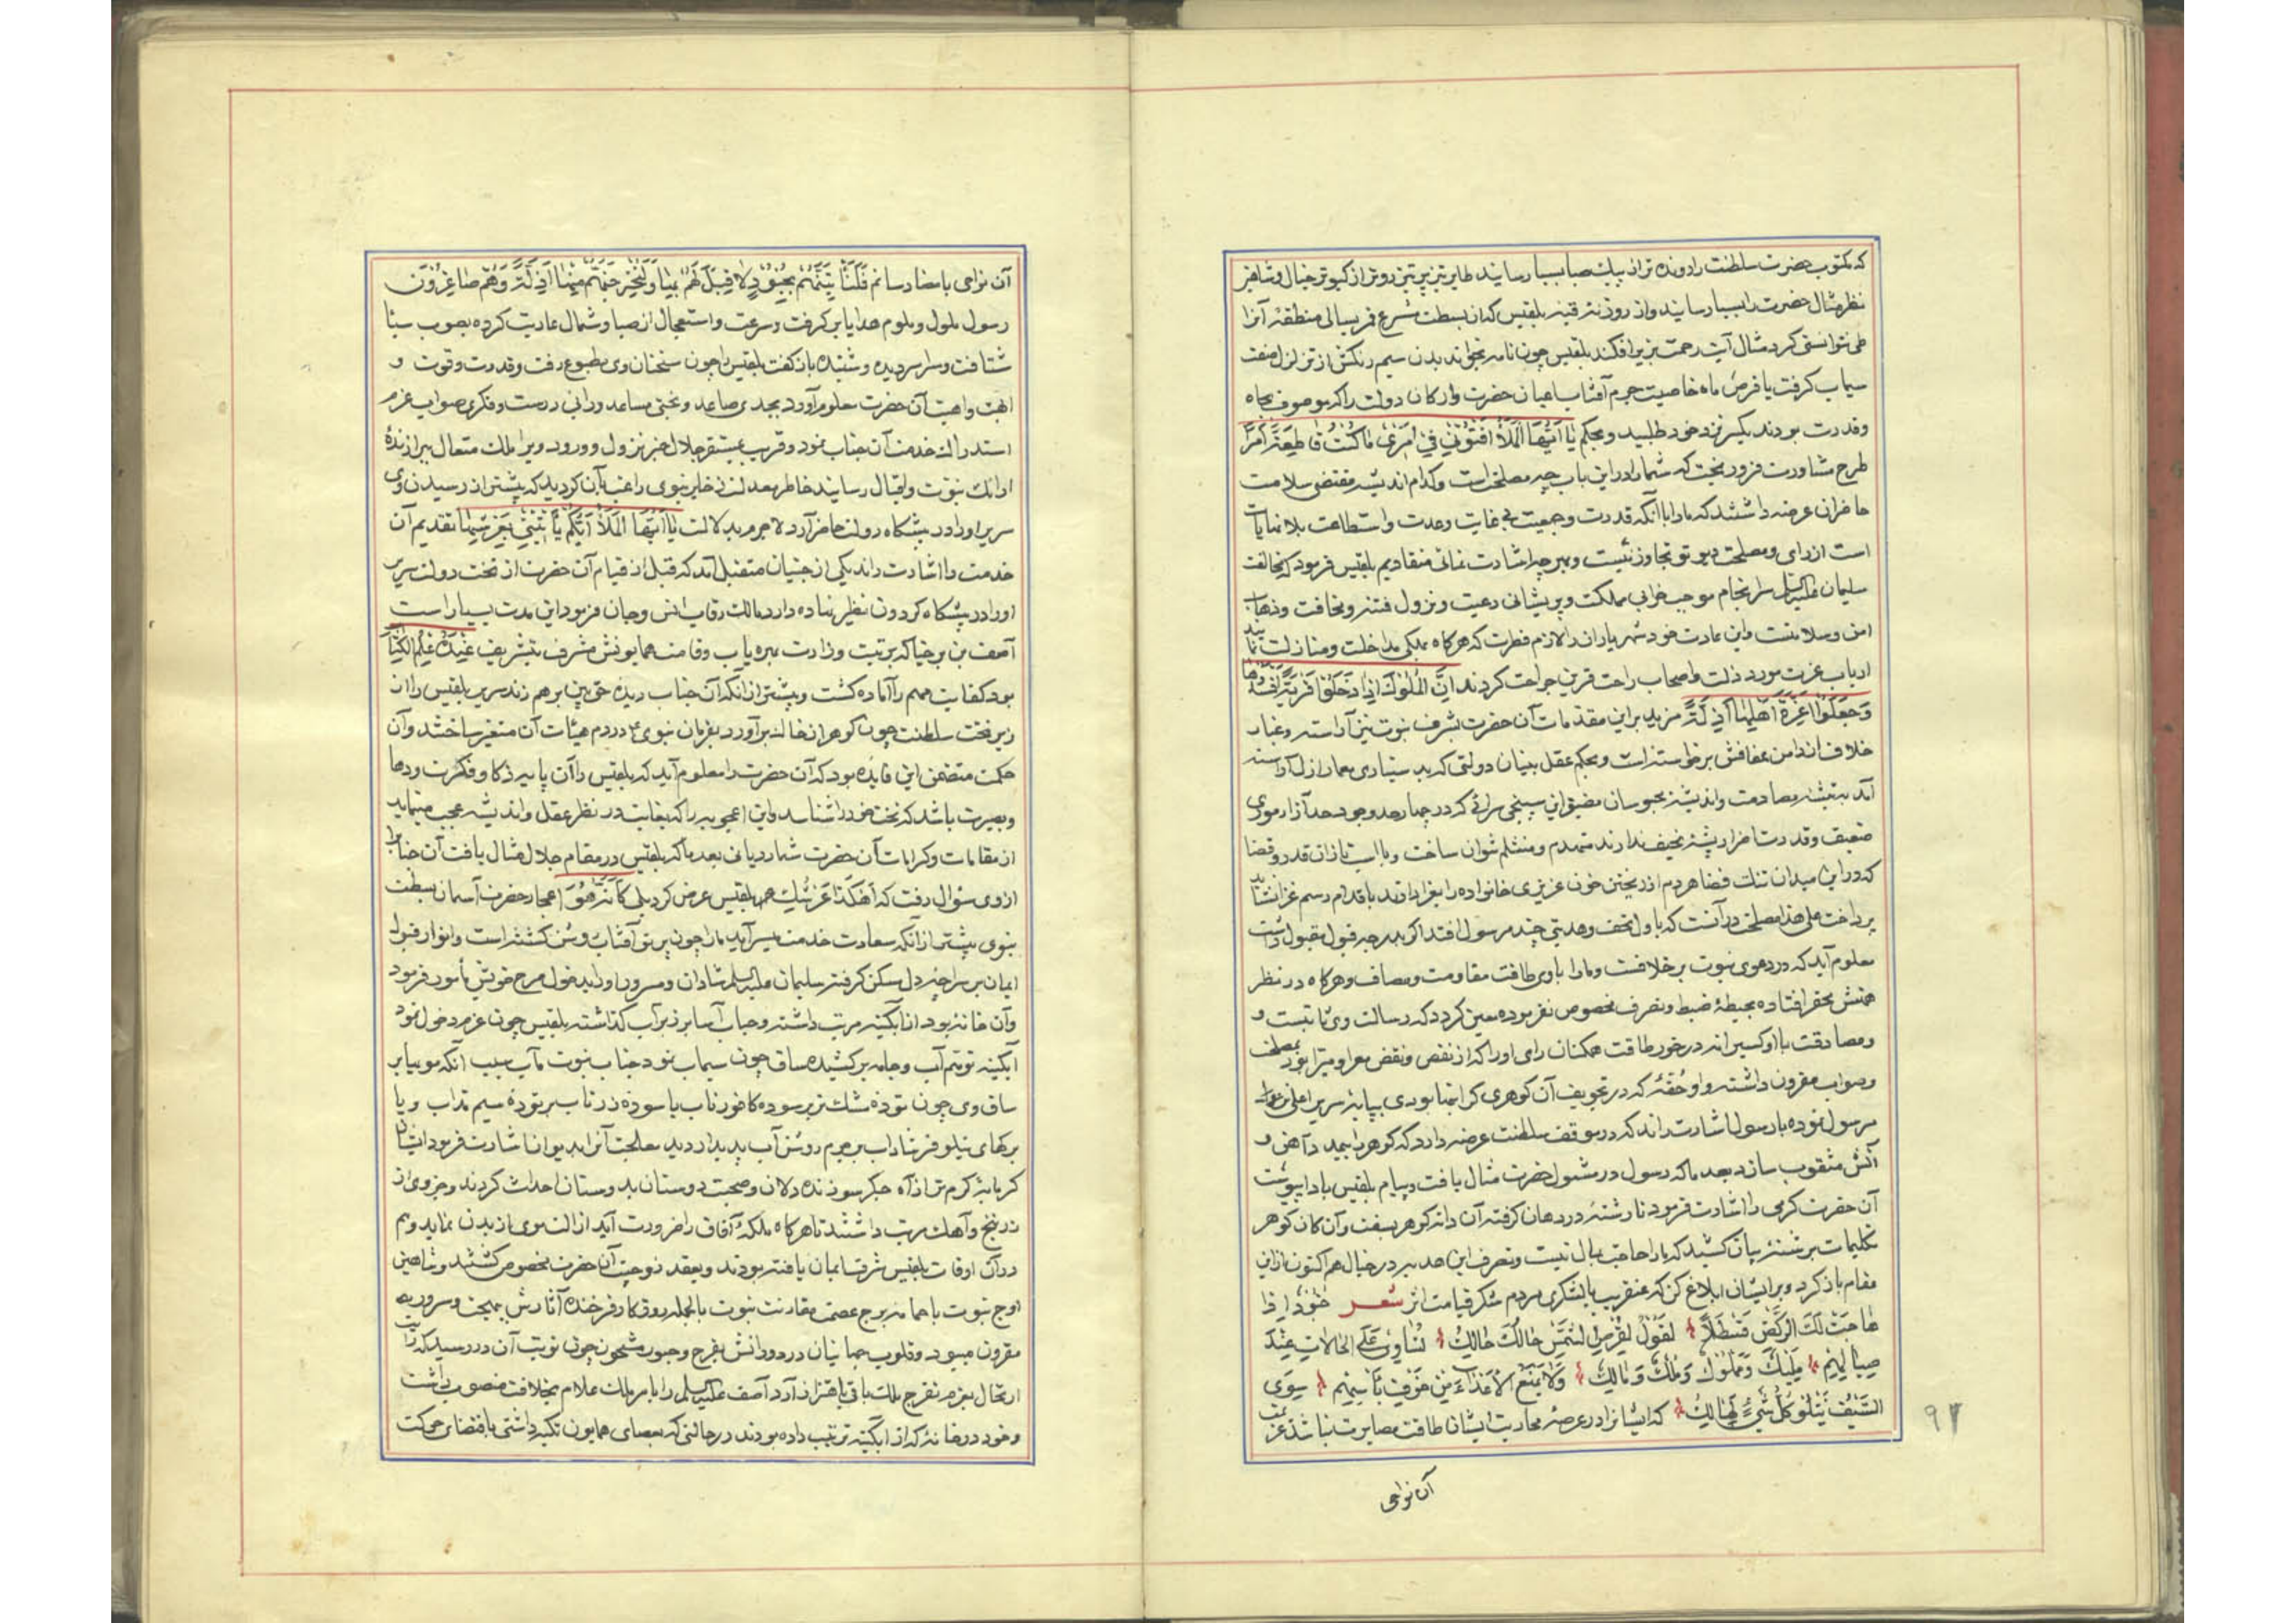 که مکتوب حضرت سلطنت را دونده تر از پیک صبا بسبا رساند طایر تیز پر تیز رو تر از کبوتر خیال و شاهین
نظر مثال حضرت را بسبا رسانید و از روزنه قبه بلقیس که از بسطت شرع فرسالی منطقه آنرا
طی نتوانستی کرد مثال آیت رحمت بزیر افکند بلقیس چون نامه بخواند بدن سیم رنگش از تزلزل صفت
سیماب گرفت یا قرص ماه خاصیت جرم آفتاب اعیان حضرت و ارکان دولت را که موصوف بجاه
و قدرت بودند یکسر نزد خود طلبید و بحکم یَا اَیُّهَا الْمَلَأُ اَفْتُونِی فِی اَمْرِی مَا کُنْتُ قَاطِعَةً اَمْرًا
طرح مشاورت فرو ریخت که شما را در این باب چه مصلحت است و کدام اندیشه مقتضی سلامت
حاضران عرضه داشتند که ما را با آنکه قدرت و جمعیت بی غایت و عدت و استطاعت بلا نهایات
است از رای و مصلحت دید تو تجاوز نیست و بهر چه اشارت نمائی منقادیم بلقیس فرمود که مخالفت
سلیمان علیه السلم سرانجام موجب خرابی مملکت و پریشانی رعیت و نزول فتنه و مخافت و ذهاب
امن و سلامتست و این عادت خود شهریاران را لازم فطرت که هرگاه بملکی مداخلت و منازلت نمایند
ارباب عزت مورد ذلت و اصحاب راحت قرین جراحت کردند اِنَّ الْمُلُوكَ اِذَا دَخَلُوا قَرْیَةً اَفْسَدُوهَا
وَجَعَلُوا اَعِزَّةَ اَهْلِهَا اَذِلَّةً مزید بر این مقدمات آن حضرت بشرف نبوت نیز آراسته و غبار
خلاف از دامن عفافش برخواسته است و بحکم عقل بنیان دولتی که بدستیاری معمار ازل آراسته
آید به تیشه مصادمت و اندیشه محبوسان مضیق این سپنجی سرائی که در چهار حد وجود حد آزار موری
ضعیف و قدرت اضرار پشه نحیف ندارند منهدم و منثلم نتوان ساخت و با استیازان قدر و قضا
که در این میدان تنك فضا هر دم از ریختن خون عزیزی خانواده را بعزا دارند باقدام رسم غزا نشاید
پرداخت علی هذا مصلحت در آنست که باول تحف و هدیتی چند مرسول افتد اگر بدرجه قبول مقبول داشت
معلوم آید که در دعوی نبوت بر خلافست و ما را با وی طاقت مقاومت و مصاف و هرگاه در نظر
همتش محقر افتاده بحیطۀ ضبط و تصرف مخصوص نفرموده معین گردد که رسالت وی ثابتست و
و مصادقت با او کسیرا نه در خور طاقت همگنان رای او را که از نقص و نقض معرا و مبرا بود بمصلحت
و صواب مقرون داشته و او حقۀ که در تجویف آن گوهری گرانبها بودی بپایۀ سریر اعلی
مرسول نموده با رسول اشارت راند که در موقف سلطنت عرضه دارد که گوهر را بیمدد آهن و
آتش مثقوب سازد بعد ما که رسول در مثول حضرت مثال یافت و پیام بلقیس بادا پیوست
آن حضرت کرمی را اشارت فرمود تا رشتۀ در دهان گرفته آن دانه گوهر بسفت و آن کان گوهر
کلمات بر شتۀ بیان کشید که ما را حاجت بمال نیست و تصرف این هدیه در خیال هم اکنون از این
مقام باز گرد و بر ایشان ابلاغ کن که عنقریب با لشکری مردم شکر قیامت اثر شعر
لَقُولُ
مَلِیكَ وَمَمْلُوكَ وَمُلْكٌ وَمَالِكٌ وَلَا یَمْنَعُ الْاَعْدَاءَ مِنْ خَوْفِ بَأسِهِمْ سِوَی
السَّیْفِ یَتْلُو کُلُّ شَیْءٍ هَالِكٌ که ایشانرا در عرصۀ محاربت ایشان طاقت مصابرت نباشد
۹۲
آن نواحی
آن نواحی بامضا رسانم فَلَنَأْتِیَنَّهُمْ بِجُنُودٍ لَا قِبَلَ لَهُمْ بِهَا وَلَنُخْرِجَنَّهُمْ مِنْهَا اَذِلَّةً وَهُمْ صَاغِرُونَ
رسول ملول و ملوم هدایا بر گرفت و سرعت و استعجال از صبا و شمال عاریت کرده بصوب سبا
شتافت و سراسر دیده و شنیده باز گفت بلقیس را چون سخنان وی مطبوع رفت و قدرت و قوت و
ابهت و اهبت آن حضرت معلوم آورد بجدی صاعد و بختی مساعد و رائی درست و فکری صواب عزم
استدراك خدمت آن جناب نمود و قریب بمستقر جلال خبر نزول و ورود ویرا ملك متعال ببرازندۀ
ارائك نبوت و اقبال رسانید خاطر معدلت ذخایر نبوی راغب بآن گردید که پیشتر از رسیدن وی
سریر او را در پیشگاه دولت حاضر آرد لاجرم بدلالت یَا اَیُّهَا الْمَلَأُ اَیُّکُمْ یَأْتِینِی بِعَرْشِهَا تقدیم آن
خدمت را اشارت راند یکی از جنیان متقبل آمد که قبل از قیام آن حضرت از تخت دولت سریر
او را در پیشگاه گردون نظیر نهاده دارد مالك رقاب انس و جان فرمود این مدت بسیار است
آصف بن برخیا که برتبت وزارت بهره یاب و قامت همایونش مشرف بتشریف عِنْدَهُ عِلْمُ الْکِتَابِ
بود کفایت مهم را آماده گشت و پیشتر از آنکه آن جناب دیده حق بین بر هم زند سریر بلقیس را از
زیر تخت سلطنت چون گوهر از خاك بر آورد بفرمان نبوی ع در دم هیئات آن متغیر ساختند و آن
حکمت متضمن این فایده بود که آن حضرت را معلوم آید که بلقیس را آن پایه ذکا و فکرت و دها
و بصیرت باشد که تخت خود را شناسد و این اعجوبه را که بغایت در نظر عقل و اندیشه عجیب مینماید
از مقامات و کرامات آن حضرت شمارد یا نی بعد ما که بلقیس در مقام جلال مثال یافت آن جناب را
از وی سؤال رفت که اَهَکَذَا عَرْشُكِ بلقیس عرض کرد بلی کَاَنَّهُ هُوَ اعجاز حضرت آسمان بسطت
نبوی پیشتر از آنکه سعادت خدمت میسر آید ما را چون پرتو آفتاب روشن گشته است و انوار قبول
ایمان بر سراچۀ دل مسکن گرفته سلیمان علیه السلم شادان و مسرور او را بدخول صرح خویش مأمور فرمود
و آن خانۀ بود از آبگینه مرتب داشته و حباب آسا بر زبر آب گذاشته بلقیس چون عزم دخول نمود
آبگینه توهم آب و جامه بر کشیده ساق چون سیماب بنمود جناب نبوت مآب سبب آنکه مو بیابر
ساق وی چون تودۀ مشك بر زبر سوده کافور ناب یا سودۀ زر ناب بر تودۀ سیم مذاب و یا
برکهای نیلوفر شاداب بر جرم روشن آب پدیدار دید معالجت آنرا بدیوان اشارت فرمود ایشان
گرمابۀ گرم تر از آه جگر سوزنده دلان و صحبت دوستان بدوستان احداث کردند و جزوی از
زرنیخ و آهك مرتب داشتند تا هرگاه ملکۀ آفاق را ضرورت آید ازالت موی از بدن نماید و هم
در آن اوقات بلقیس شرف ایمان یافته بودند و بعقد زوجیت آن حضرت مخصوص گشتند و شاهین
اوج نبوت با حمامۀ برج عصمت مقارنت نبوت بالجمله روزگار فرخنده آثارش ببهجت و سرور
مقرون میبود و قلوب جهانیان در دورانش بفرح و حبور مشحون چون نوبت آن در رسید که رایت
ارتحال بعزم تفرج ملك باقی باهتزاز آرد آصف علیه السلم را بامر ملك علام بخلافت منصوب داشت
و خود در خانۀ که از آبگینه ترتیب داده بودند در حالتی که بعصای همایون تکیه داشتی باقتضای حرکت